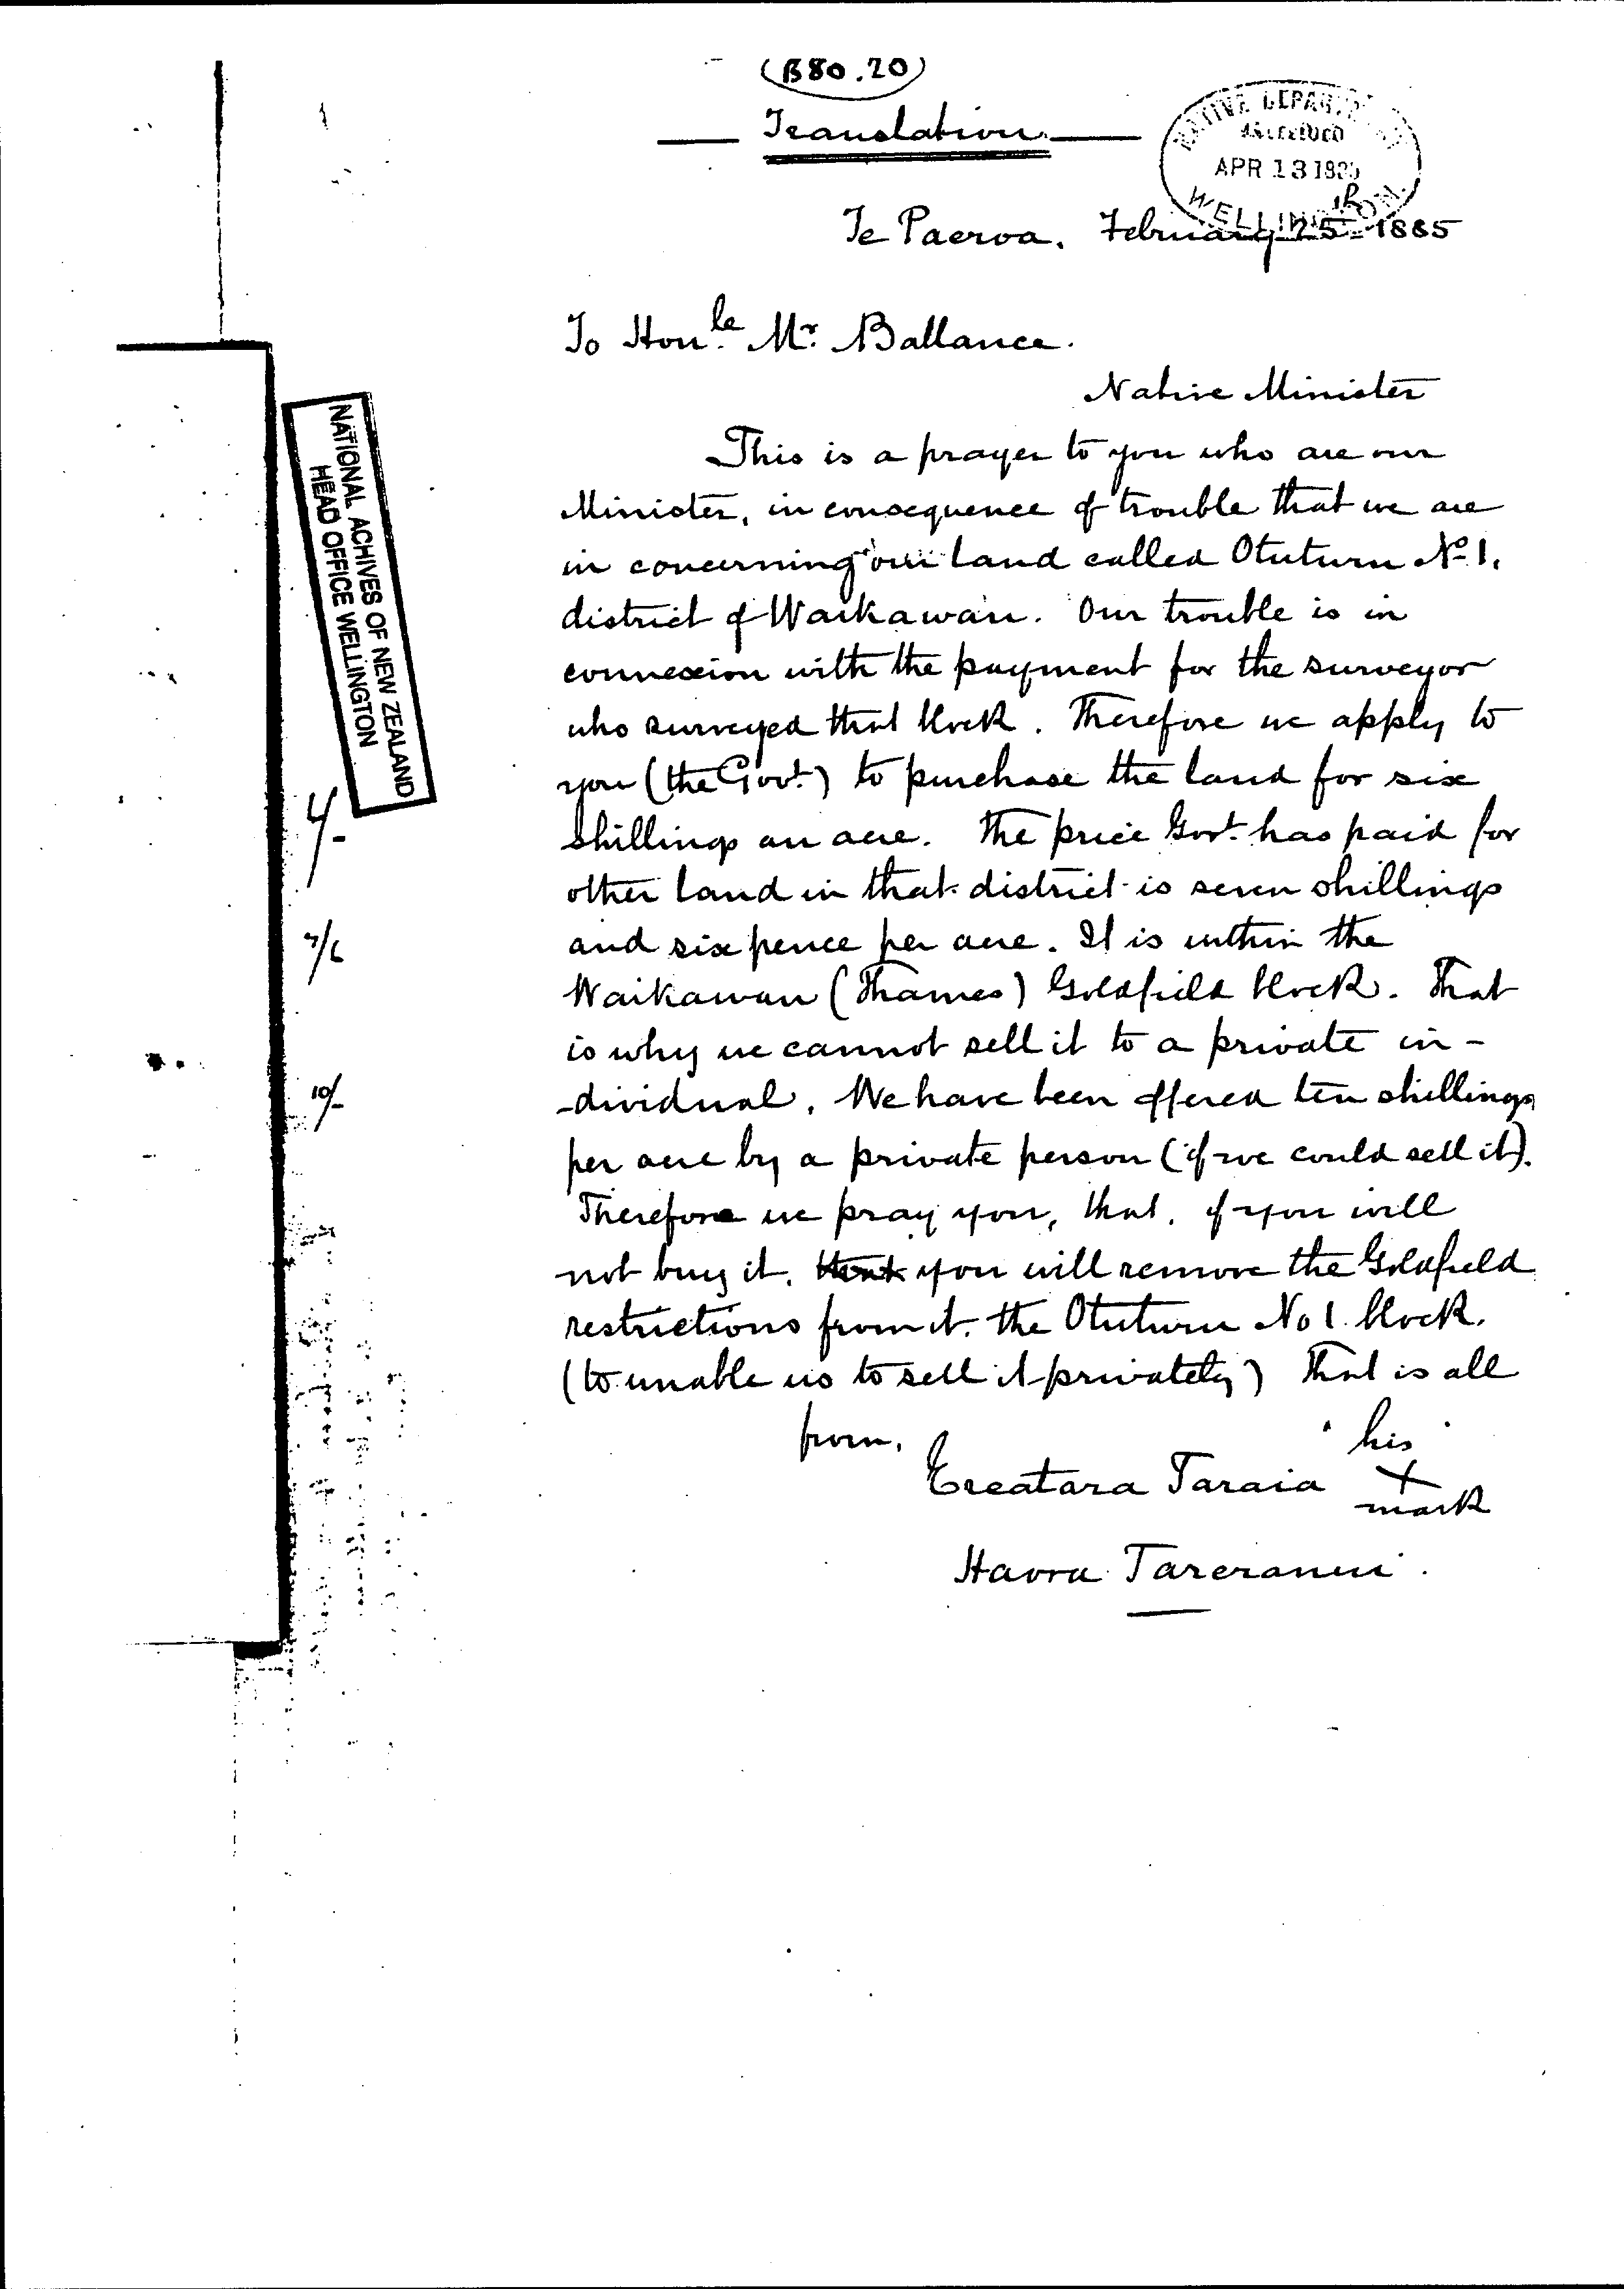 (B80.20)
Translation.
NATIVE DEPARTMENT
RECEIVED
APR 13 1885
WELLINGTON.
Te Paeroa. February 25th 1885
To Honle. Mr. Ballance.
Native Minister
This is a prayer to you who are our
Minister, in consequence of trouble that we are
in concerning our land called Otuturu No 1.
district of Waikawau. Our trouble is in
connexion with the payment for the surveyor
who surveyed that block. Therefore we apply to
you (the Govt.) to purchase the land for six
shillings an acre. The price Govt. has paid for
other land in that district is seven shillings
and six pence per acre. It is within the
Waikawau (Thames) Goldfield block. That
is why we cannot sell it to a private in-
-dividual. We have been offered ten shillings
per acre by a private person (if we could sell it).
Therefore we pray you, that, if you will
not buy it, that you will remove the Goldfield
restrictions from it. the Otuturu No 1. block.
(to unable us to sell it privately) That is all
from,
his
Ereatara Taraia X
mark
Haora Tareranui.
NATIONAL ACHIVES OF NEW ZEALAND
HEAD OFFICE WELLINGTON
7/6
10/-